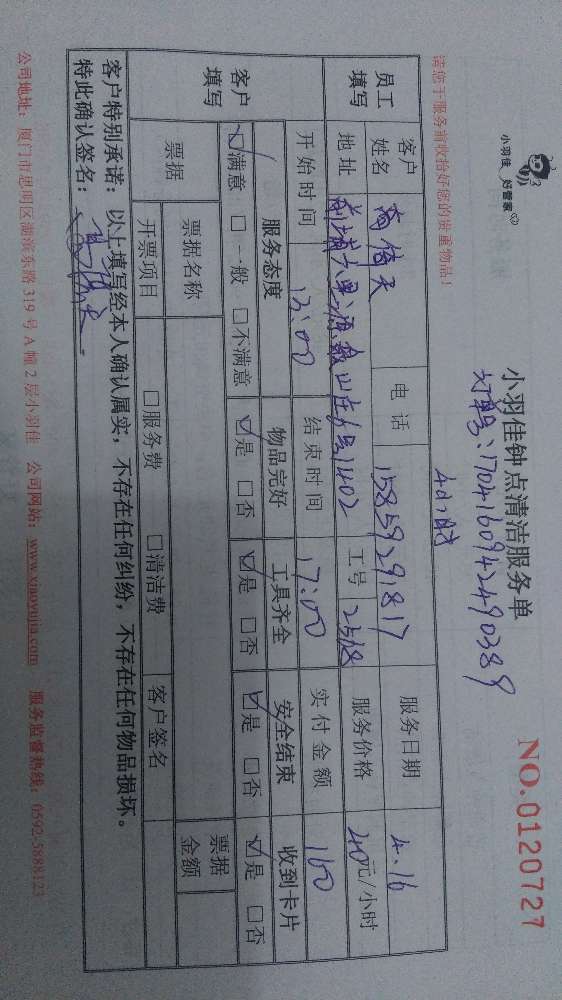 小羽佳 好管家
小羽佳钟点清洁服务单
NO.0120727
订单号:1704160942490389
请您于服务前收拾好您的贵重物品!
4小时
员工填写 客户姓名 电话 15859291817 服务日期 4.16
地址 工号 2518 服务价格 40元/小时
开始时间 13:00 结束时间 17:00 实付金额 160
客户填写 服务态度 物品完好 工具齐全 安全结束 收到卡片
☑满意 □一般 □不满意 ☑是 □否 ☑是 □否 ☑是 □否 ☑是 □否
票据 票据名称 票据金额
开票项目 □服务费 □清洁费 客户签名
客户特别承诺:以上填写经本人确认属实,不存在任何纠纷,不存在任何物品损坏。
特此确认签名:
公司地址:厦门市思明区湖滨东路319号A幢2层小羽佳 公司网站:www.xiaoyujia.com 服务监督热线:0592-5888123